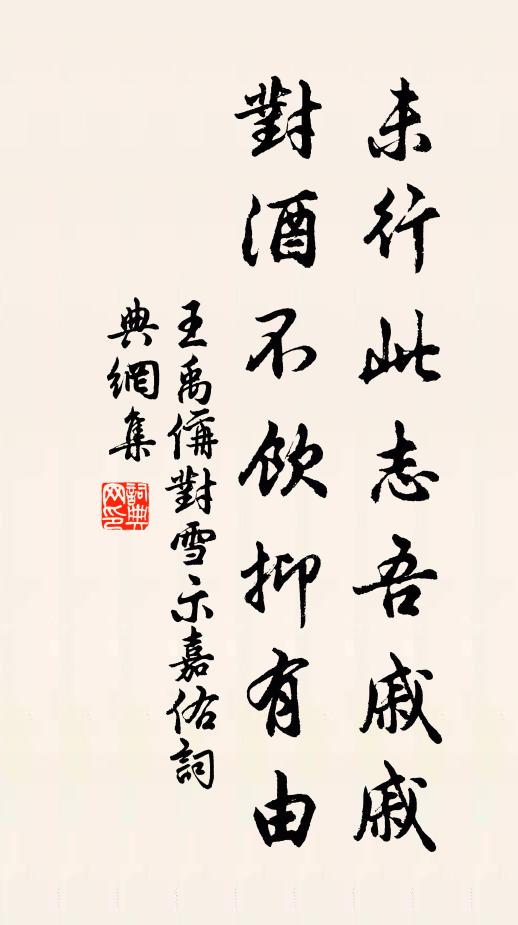 未行此志吾戚戚
對酒不飲抑有由
王禹偁對雪示嘉佑詞
典網集
詞典网印